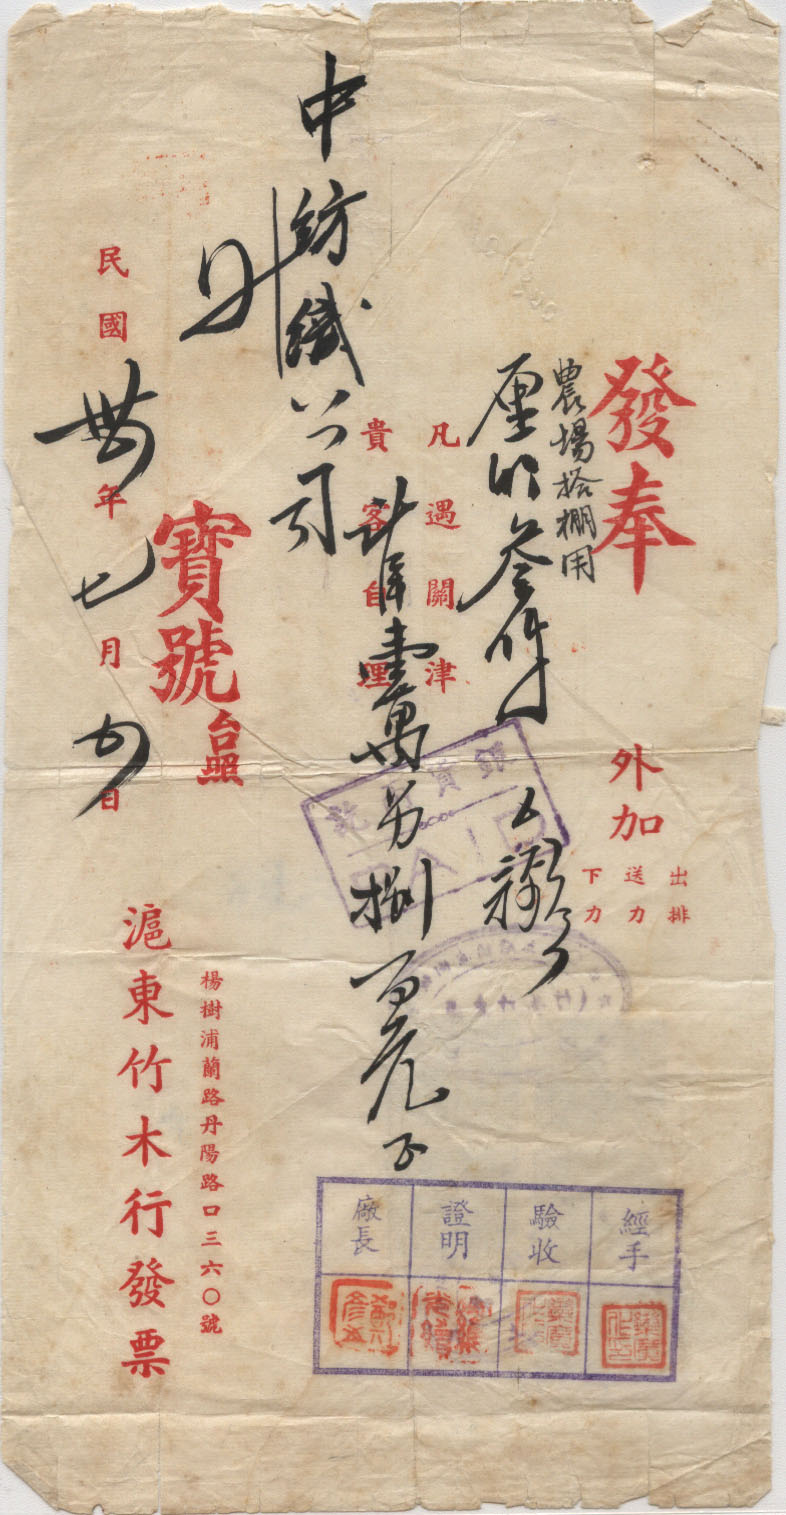 奉發
農場搭棚用
外加
出排
送力
下力
叁件
凡遇關津
貴客自理
計洋壹萬另捌百元正
中紡織公司
寶號台照
民國卅年七月 日
楊樹浦蘭路丹陽路口三六〇號
滬東竹木行發票
PAID
經手
驗收
證明
廠長